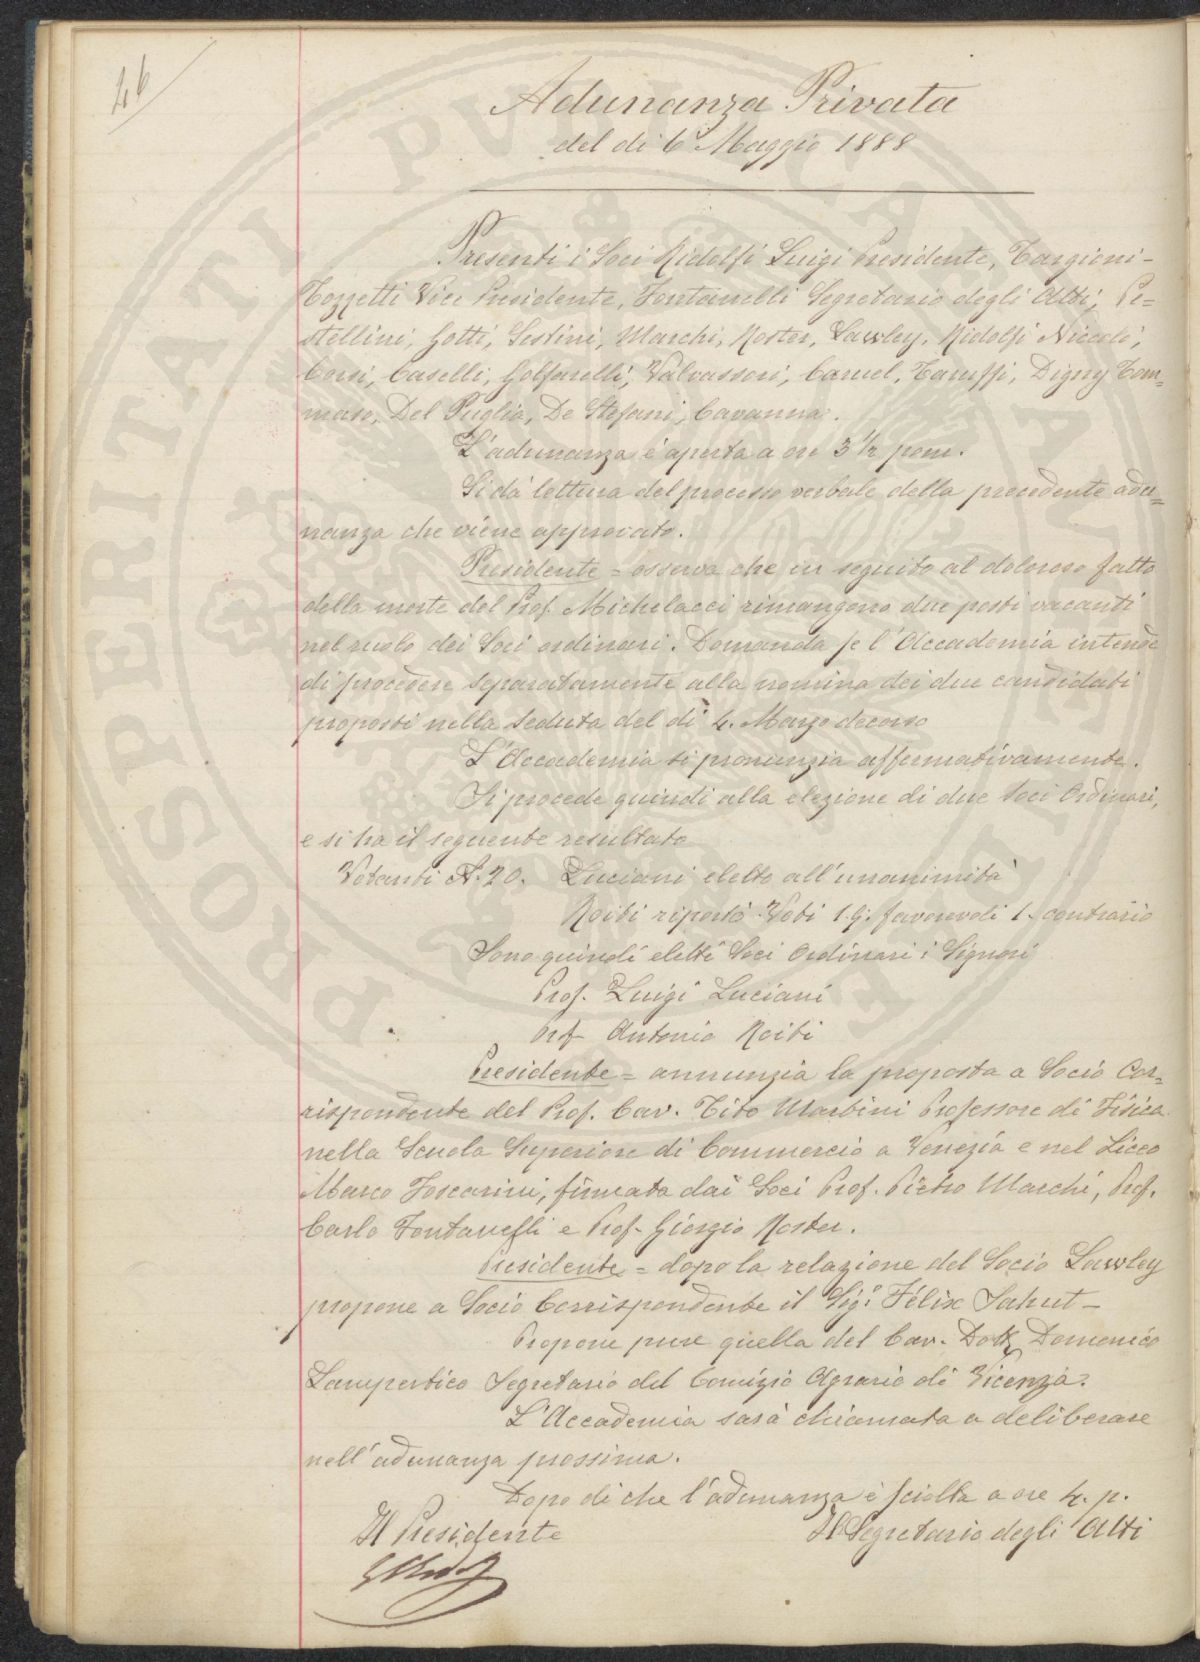 46
Adunanza Privata
del dì 6 Maggio 1888
Presenti i Soci Ridolfi Luigi Presidente, Targioni-
Tozzetti Vice Presidente, Fontanelli Segretario degli Atti, Pe=
stellini, Gotti, Sestini, Marchi, Roster, Lawley, Ridolfi Niccolò,
Corsi, Caselli, Golfarelli, Valvassori, Caruel, Taruffi, Digny Tom=
maso, Del Puglia, De Stefani, Cavanna.
L'adunanza è aperta a ore 3 1/2 pom.
Si dà lettura del processo verbale della precedente adu=
nanza che viene approvato.
Presidente = osserva che in seguito al doloroso fatto
della morte del Prof. Michelacci rimangono due posti vacanti
nel ruolo dei Soci ordinari. Domanda se l'Accademia intende
di procedere separatamente alla nomina dei due candidati
proposti nella Seduta del dì 4. Marzo decorso
L'Accademia si pronunzia affermativamente.
Si procede quindi alla elezione di due Soci Ordinari,
e si ha il seguente resultato
Votanti N. 20. Luciani eletto all'unanimità
Roiti riportò Voti 19. favorevoli 1. contrario
Sono quindi eletti Soci Ordinari i Signori
Prof. Luigi Luciani
Prof Antonio Roiti
Presidente = annunzia la proposta a Socio Cor=
rispondente del Prof. Cav. Tito Martini Professore di Fisica
nella Scuola Superiore di Commercio a Venezia e nel Liceo
Marco Foscarini, firmata dai Soci Prof. Pietro Marchi, Prof.
Carlo Fontanelli e Prof. Giorgio Roster.
Presidente = dopo la relazione del Socio Lawley
propone a Socio Corrispondente il Sigr. Félix Sahut —
Propone pure quella del Cav. Dott. Domenico
Lampertico Segretario del Comizio Agrario di Vicenza.
L'Accademia sarà chiamata a deliberare
nell'adunanza prossima.
Dopo di che l'adunanza è sciolta a ore 4. p.
Il Presidente Il Segretario degli Atti
PROSPERITATI PVBLICAE